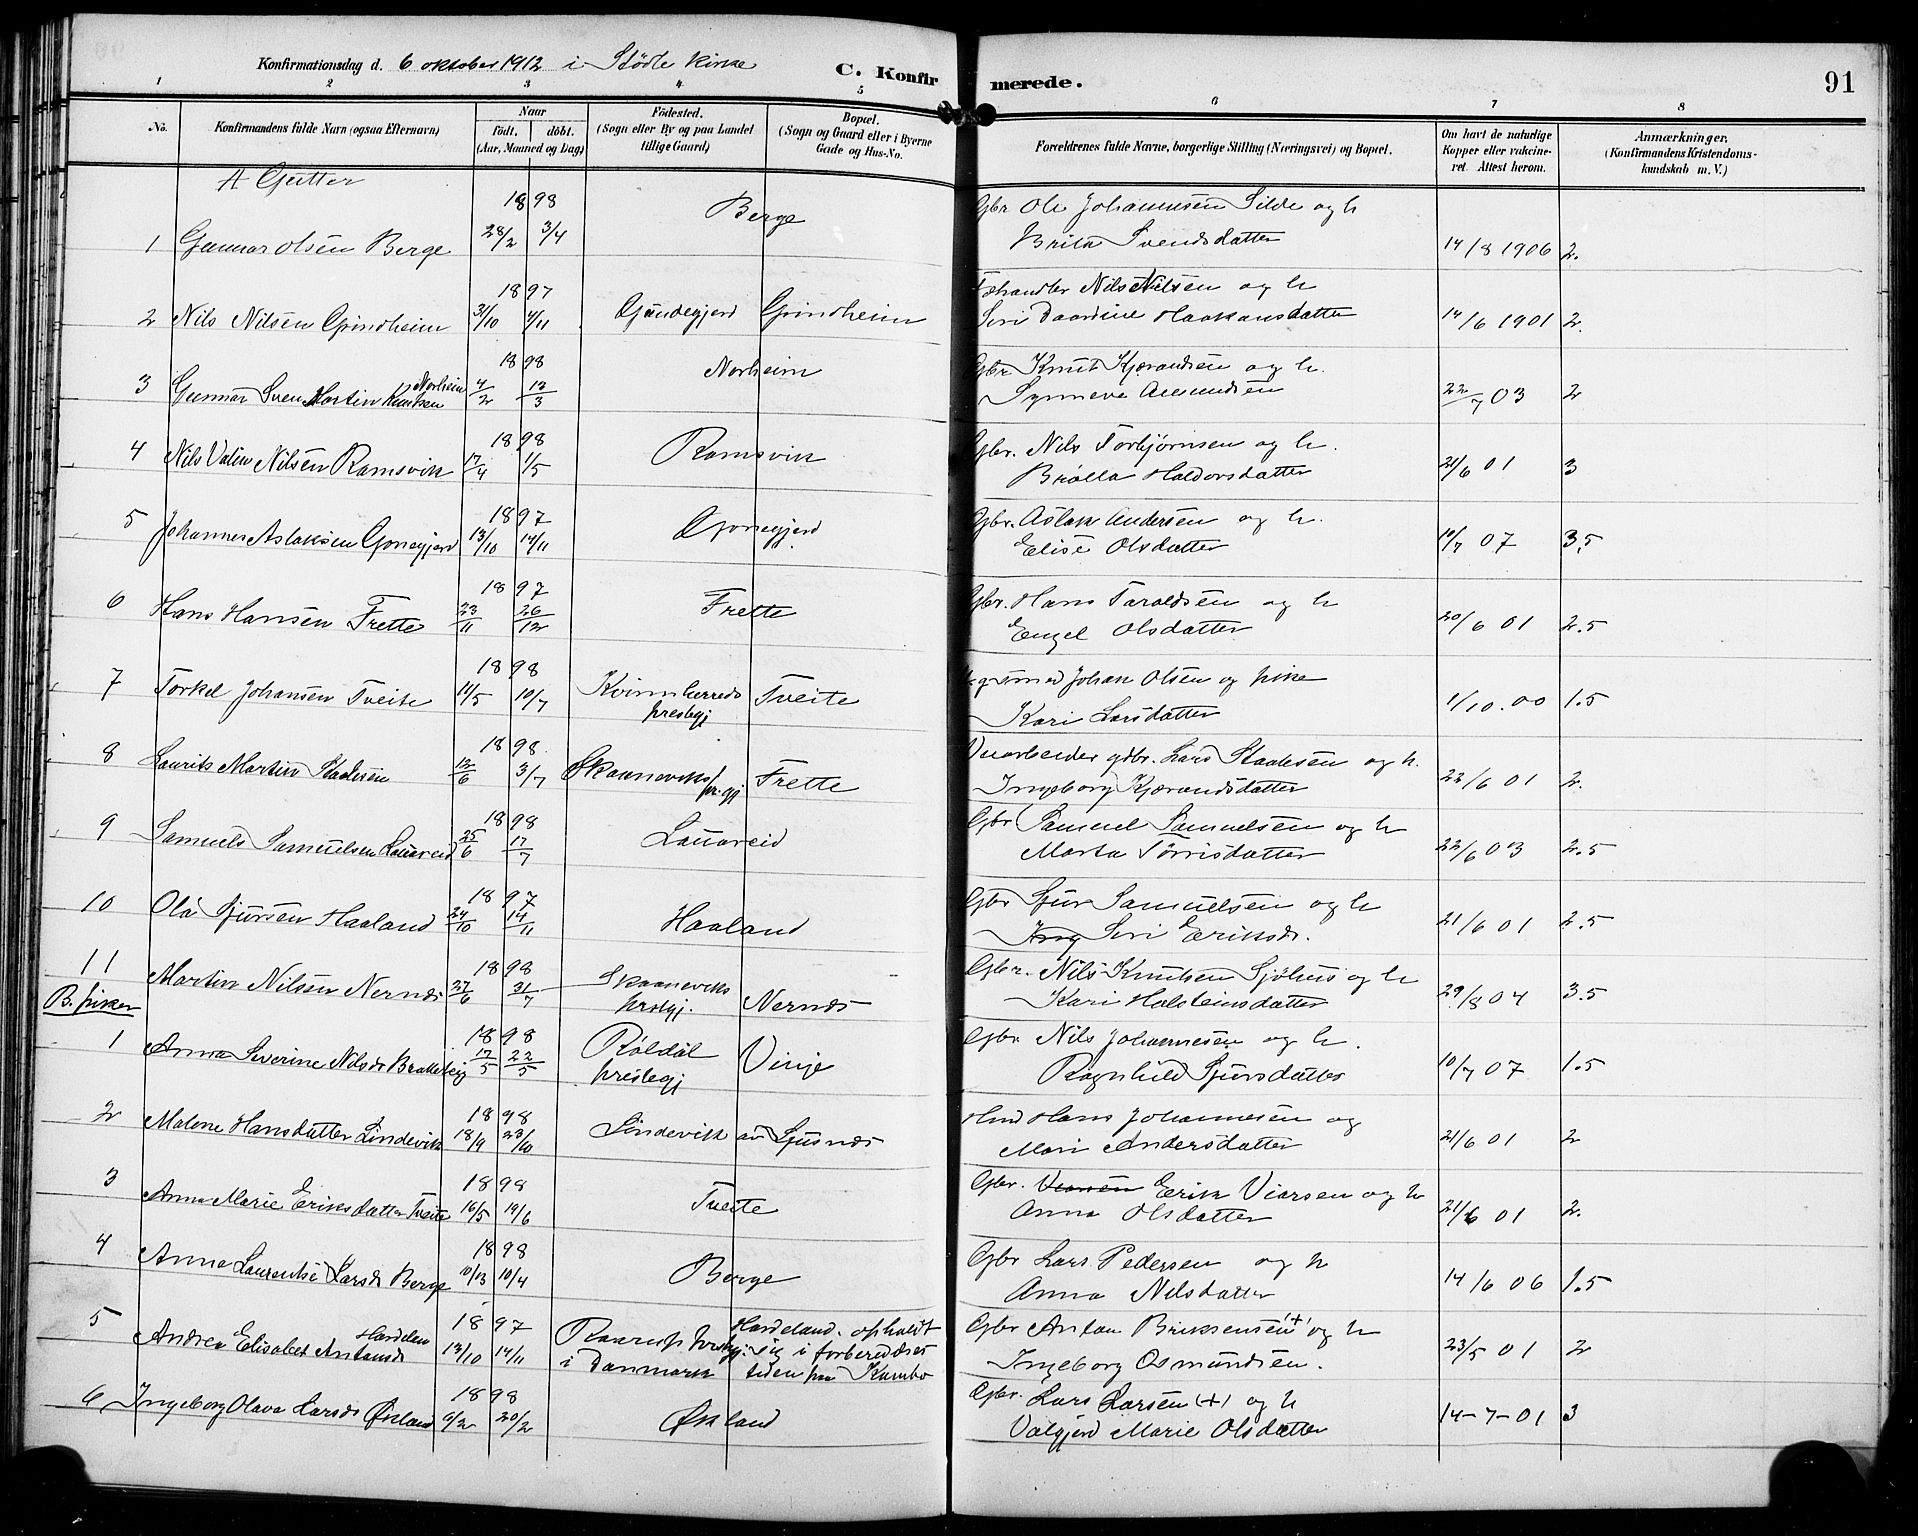 Konfirmationsdag d. 6 oktober 1912 i Stödle Kirke
C. Konfirmerede.
91
1 2 3 4 5 6 7 8
No.
Konfirmandens fulde Navn (ogsaa Efternavn)
Naar
født. døbt.
(Aar, Maaned og Dag)
Fødested.
(Sogn eller By og paa Landet
tillige Gaard)
Bopæl.
(Sogn og Gaard eller i Byerne
Gade og Hus-No.
Forældrenes fulde Navne, borgerlige Stilling (Næringsvei) og Bopæl.
Om havt de naturlige
Kopper eller vakcine-
ret. Attest herom.
Anmærkninger,
(Konfirmandens Kristendoms-
kundskab m. V.)
A Gutter
1 Gunnar Olsen Berge 1898 28/2 3/4 Berge Gbr Ole Johannesen Silde og h
Brita Svendsdatter 14/8 1906 2.
2 Nils Nilsen Grindheim 1897 31/10 4/11 Grindheim Fæhandler Nils Nilsen og h
Siri Haakansdatter 14/6 1901 2.
3 Gunnar Sven Martin Knutsen Norheim 1898 4/2 13/3 Norheim Gbr Knut Kjærandsen og h.
Synneve Aamundsen 22/7 03 2
4 Nils Valin Nilsen Ramsvik 1898 17/4 1/5 Ramsvik Gbr. Nils Torbjørnsen og h.
Brølla Haldorsdatter 21/6 01 3
5 Johannes Aslaksen Gonegjerd 1897 13/10 14/11 Gonegjerd Gbr. Aslak Andersen og h.
Elise Olsdatter 10/7 07 3.5
6 Hans Hansen Frette 1897 23/11 26/12 Frette Gbr. Hans Taraldsen og h
Engel Olsdatter 20/6 01 2.5
7 Torkel Johansen Tveite 1898 11/5 10/7 Kvinnherreds
prestegj Tveite Johan Olsen og pike
Kari Larsdatter 1/10.00 1.5
8 Laurits Martin Stadesen 1898 12/6 3/7 Skaaneviks
pr.gj Frette gbr. Lars Stadesen og h.
Ingeborg Kjærandsdatter 22/6 01 2.
9 Samuels Samuelsen Lauareid 1898 25/6 17/7 Lauareid Gbr Samuel Samuelsen og h
Marta Tørrisdatter 22/6 03 2.5
10 Ola Sjursen Haaland 1897 24/10 14/11 Haaland Gbr Sjur Samuelsen og h
Ing Siri Eriksdr. 21/6 01 2.5
11 Martin Nilsen Nernes 1898 27/6 31/7 Skaaneviks
prestgj. Nernes Gbr. Nils Knutsen Sjöhus og h
Kari Halsteinsdatter 29/8 04 3.5
B. piker
1 Anna Severine Nilsdr Bratteteig 1898 17/5 22/5 Röldal
prestegj Vinje Gbr Nils Johannesen og h.
Ragnhild Sjursdatter 10/7 07 1.5
2 Malene Hansdatter Lindevik 1898 18/9 23/10 Lindevik av Sjusnes Hmd Hans Johannesen og
Mari Andersdatter 21/6 01 2
3 Anna Marie Eriksdatter Tveite 1898 16/5 19/6 Tveite Gbr. Viarsen Erik Viarsen og h
Anna Olsdatter 21/6 01 2.
4 Anna Laurentse Larsdr Berge 1898 10/13 10/4 Berge Gbr Lars Pedersen og h
Anna Nilsdatter 14/6 06 1.5
5 Andrea Elisabet Antonsdr Hardeland 1897 13/10 14/11 prestgj.
i Danmark Hardeland. opholdt
sig i forberedelses
tiden paa Gbr Anton Eriksensen (+) og h
Ingeborg Osmundsen. 23/5 01 2
6 Ingeborg Olava Larsdr Økland 1898 9/2 20/2 Økland Gbr. Lars Larsen (+) og h
Valgjerd Marie Olsdatter 14-7-01 3